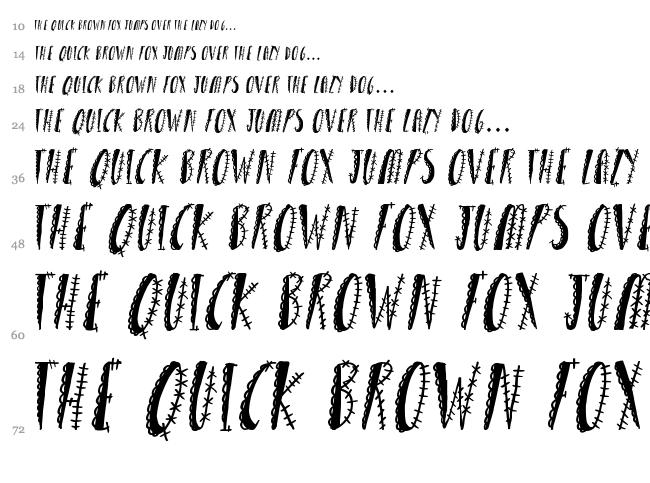 10 THE QUICK BROWN FOX JUMPS OVER THE LAZY DOG...
14 THE QUICK BROWN FOX JUMPS OVER THE LAZY DOG...
18 THE QUICK BROWN FOX JUMPS OVER THE LAZY DOG...
24 THE QUICK BROWN FOX JUMPS OVER THE LAZY DOG...
36 THE QUICK BROWN FOX JUMPS OVER THE LAZY
48 THE QUICK BROWN FOX JUMPS OVE
60 THE QUICK BROWN FOX JUM
72 THE QUICK BROWN FOX